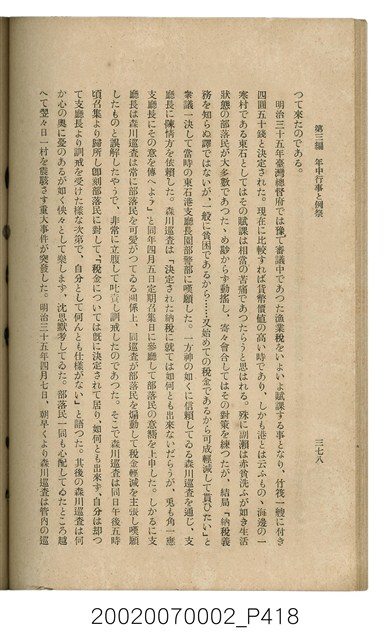 第三編　年中行事と例祭　　三七八
つて來たのである。
明治三十五年臺灣總督府では豫て審議中であつた漁業稅をいよいよ賦課する事となり、竹筏一艘に付き
四圓五十錢と決定された。現在に比較すれば貨幣價值の高い時であり、しかも港とは云ふもの、海邊の一
寒村である東石としてはその賦課は相當の苦痛であつたらうと思はれる。殊に副瀨は赤貧洗ふが如き生活
狀態の部落民が大多數であつた、ぬ勘からず動搖し、寄々會合してはその對策を練つたが、結局「納稅義
務を知らぬ譯ではないが、一般に貧困であるから……又始めての稅金であるから可成輕減して貰ひたい」と
衆議一決して當時の東石港支廳長園部警部に嘆願した。一方神の如くに信賴してゐる森川巡査を通じ、支
廳長に陳情方を依賴した。森川巡査は「決定された納稅に就ては如何とも出來ないだらうが、兎も角一應
支廳長にその意を傳へよう」と同年四月五日定期召集日に參廳して部落民の意嚮を上申した。しかるに支
廳長は森川巡査は常に部落民を可愛がつてゐる關係上、同巡査が部落民を煽動して稅金輕減を主張し嘆願
したものと誤解したやうで、非常に立腹して叱責し訓戒したのであつた。そこで森川巡査は同日午後五時
頃召集より歸所し卽刻部落民に對して、「稅金については旣に決定されて居り、如何とも出來ず、自分は却つ
て支廳長より訓戒を受けた樣な次第で、自分として何んとも仕樣がない」と語つた。其後の森川巡査は何
か心の奧に憂のあるが如く怏々として樂します、沈思默考してゐた。部落民一同も心配してゐたところ越
へて翌々日一村を震駭さす重大事件が突發した。明治三十五年四月七日、朝早くより森川巡査は管內の巡
20020070002_P418